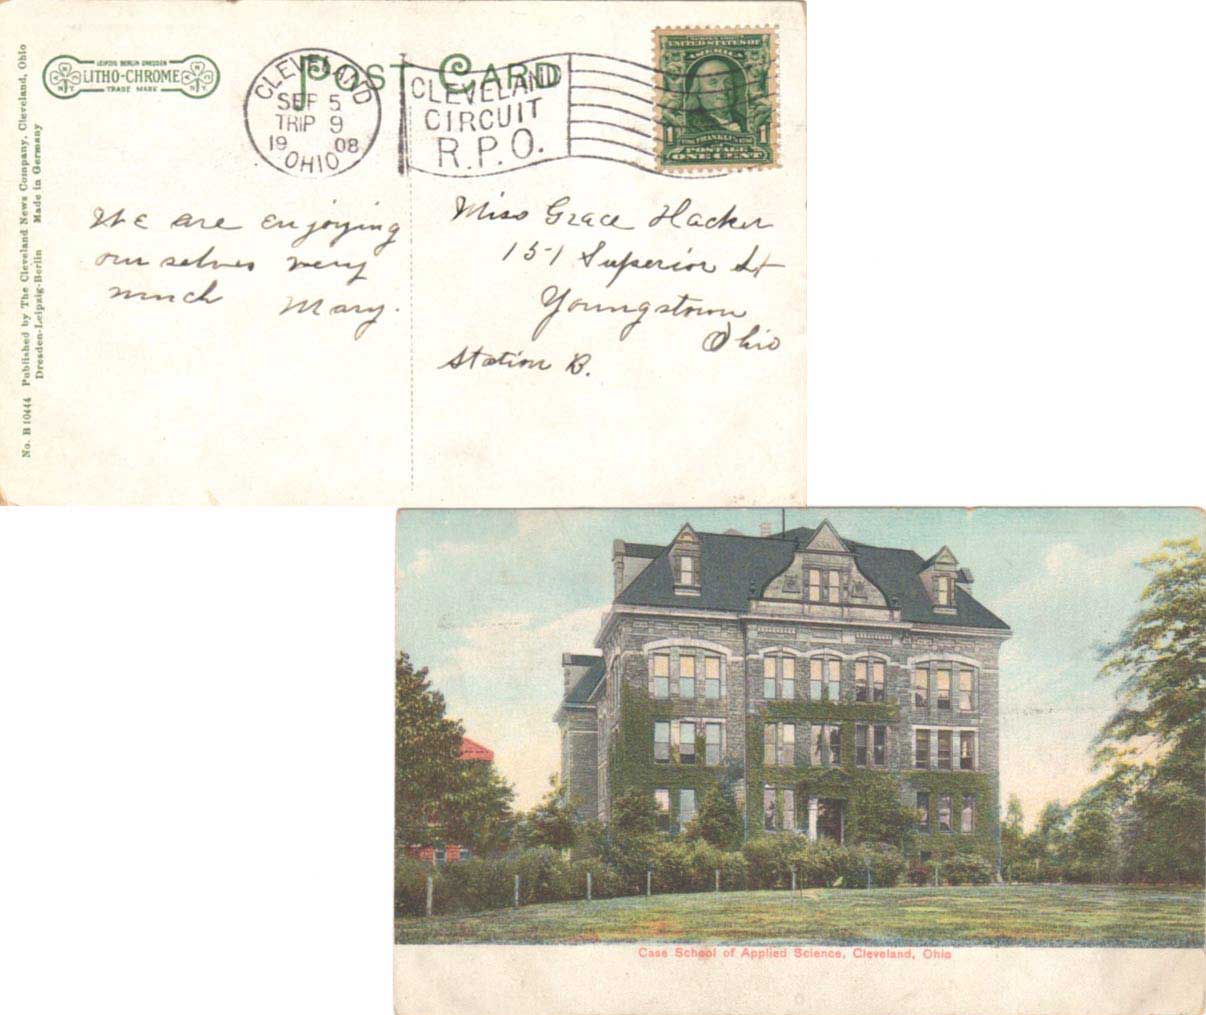 No. B 10444 Published by The Cleveland News Company, Cleveland, Ohio
Dresden-Leipzig-Berlin Made in Germany
LEIPZIG BERLIN DRESDEN
LITHO-CHROME
TRADE MARK
POST CARD
CLEVELAND
SEP 5
TRIP 9
19 08
OHIO
CLEVELAND
CIRCUIT
R.P.O.
UNITED STATES OF
AMERICA
1 FRANKLIN 1
POSTAGE
ONE CENT
We are enjoying
ourselves very
much Mary.
Miss Grace Hacker
151 Superior St
Youngstown
Ohio
Station B.
Case School of Applied Science, Cleveland, Ohio